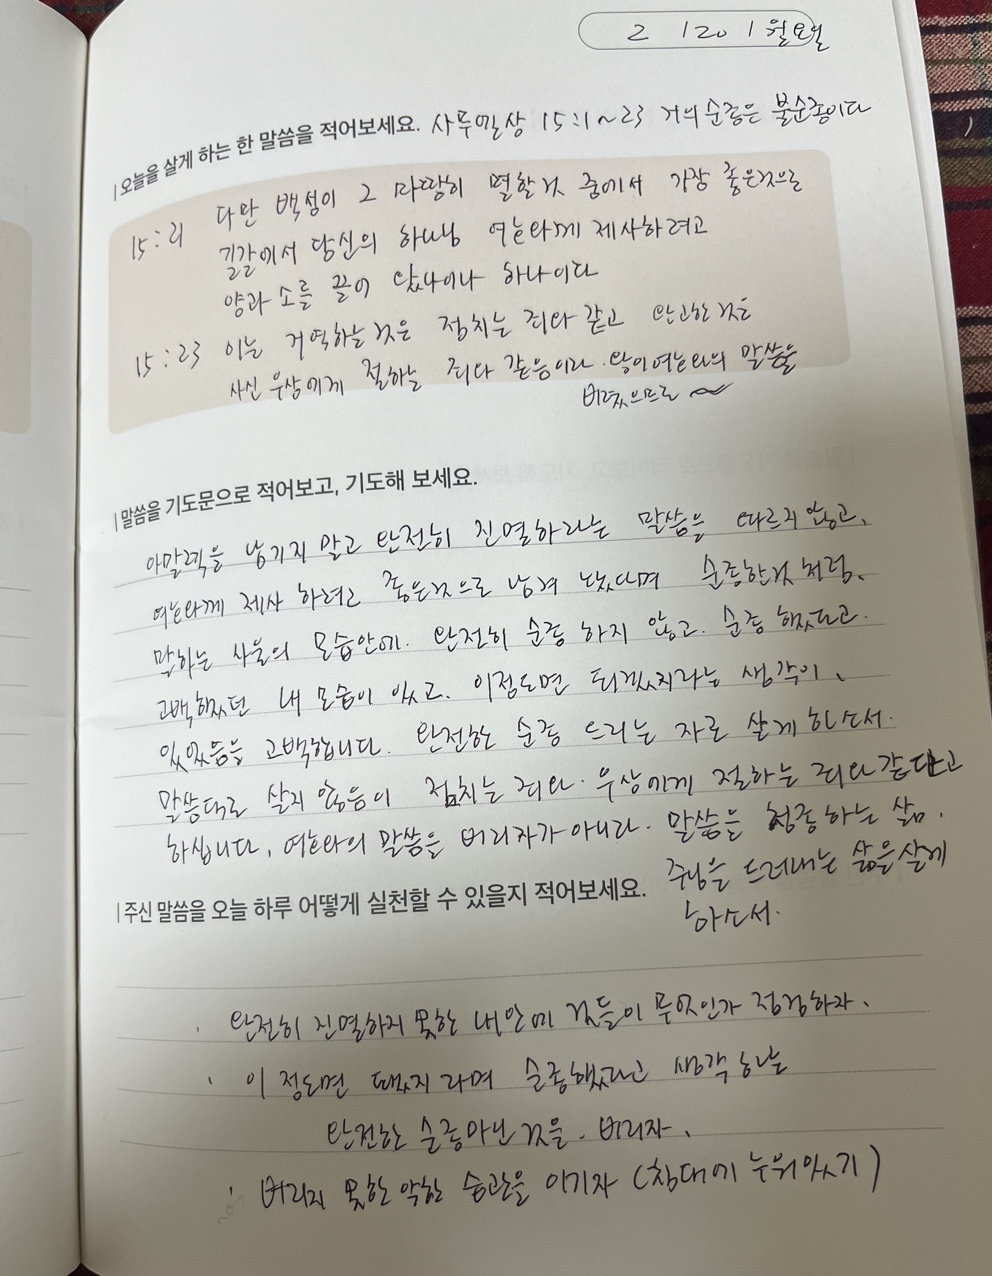 2 / 20 / 월요일
오늘을 살게 하는 한 말씀을 적어보세요. 사무엘상 15:1~23 거의순종은 불순종이다
15:21 다만 백성이 그 마땅히 멸할것 중에서 가장 좋은것으로
길갈에서 당신의 하나님 여호와께 제사하려고
양과 소를 끌어 왔나이다 하나이다
15:23 이는 거역하는것은 점치는 죄와 같고 완고한 것은
사신 우상에게 절하는 죄와 같음이라. 왕이여호와의 말씀을
버렸으므로 ~
말씀을 기도문으로 적어보고, 기도해 보세요.
아말렉을 남기지 말고 완전히 진멸하라는 말씀을 따르지 않고,
여호와께 제사 하려고 좋은것으로 남겨 놨다며 순종한것 처럼,
말하는 사울의 모습안에. 완전히 순종 하지 않고. 순종 했다고.
고백했던 내 모습이 있고. 이정도면 되겠지라는 생각이,
있었음을 고백합니다. 완전한 순종 드리는 자로 살게 하소서.
말씀대로 살지 않음이 점치는 죄와. 우상에게 절하는 죄와 같다고
하십니다, 여호와의 말씀을 버리자가 아니라. 말씀을 청종하는 삶.
주님을 드러내는 삶을살게
하소서.
주신 말씀을 오늘 하루 어떻게 실천할 수 있을지 적어보세요.
· 완전히 진멸하지 못한 내안에 것들이 무엇인가 점검하자.
· 이 정도면 됐지 라며 순종했다고 생각 하는
완전한 순종아닌 것을. 버리자.
· 버리지 못한 악한 습관을 이기자 (침대에 누워있기)